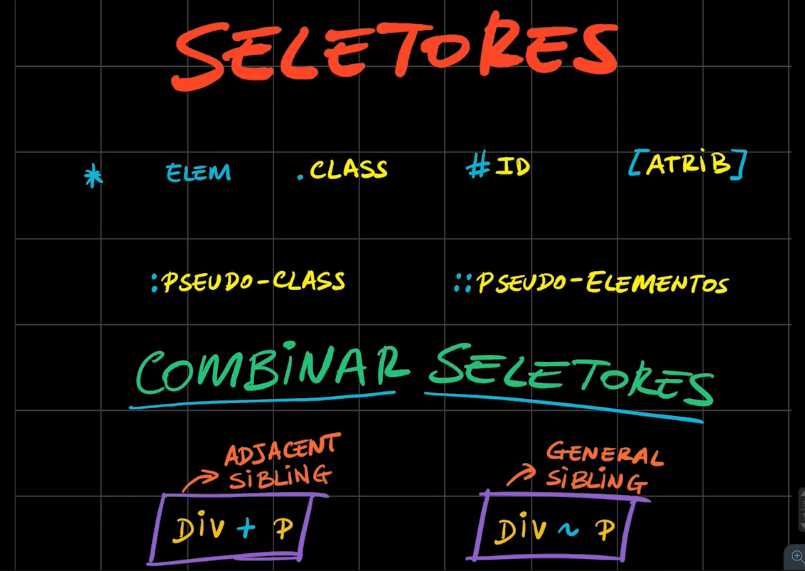 SELETORES
* ELEM .CLASS #ID [ATRIB]
:PSEUDO-CLASS ::PSEUDO-ELEMENTOS
COMBINAR SELETORES
ADJACENT
SIBLING
DIV + P
GENERAL
SIBLING
DIV ~ P